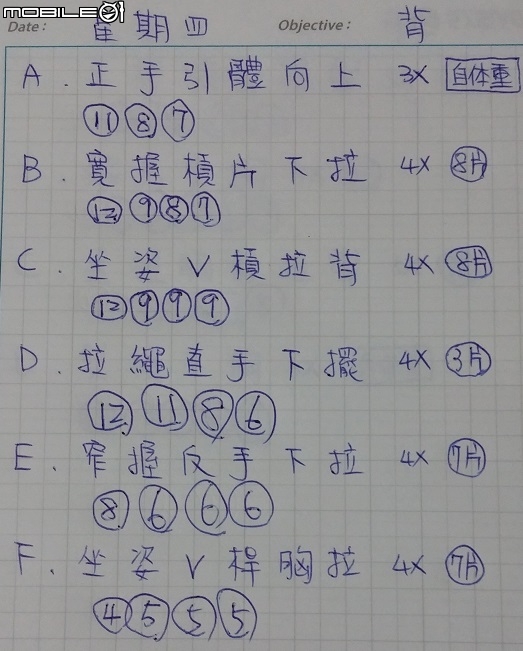 MOBILE01
Date: 星期四 Objective: 背
A. 正手引體向上 3X 自体重
⑪ ⑧ ⑦
B. 寬握槓片下拉 4X 8片
⑫ ⑨ ⑧ ⑦
C. 坐姿V槓拉背 4X 8片
⑫ ⑨ ⑨ ⑨
D. 拉繩直手下擺 4X 3片
⑫ ⑪ ⑧ ⑥
E. 窄握反手下拉 4X 7片
⑧ ⑥ ⑥ ⑥
F. 坐姿V桿胸拉 4X 7片
④ ⑤ ⑤ ⑤